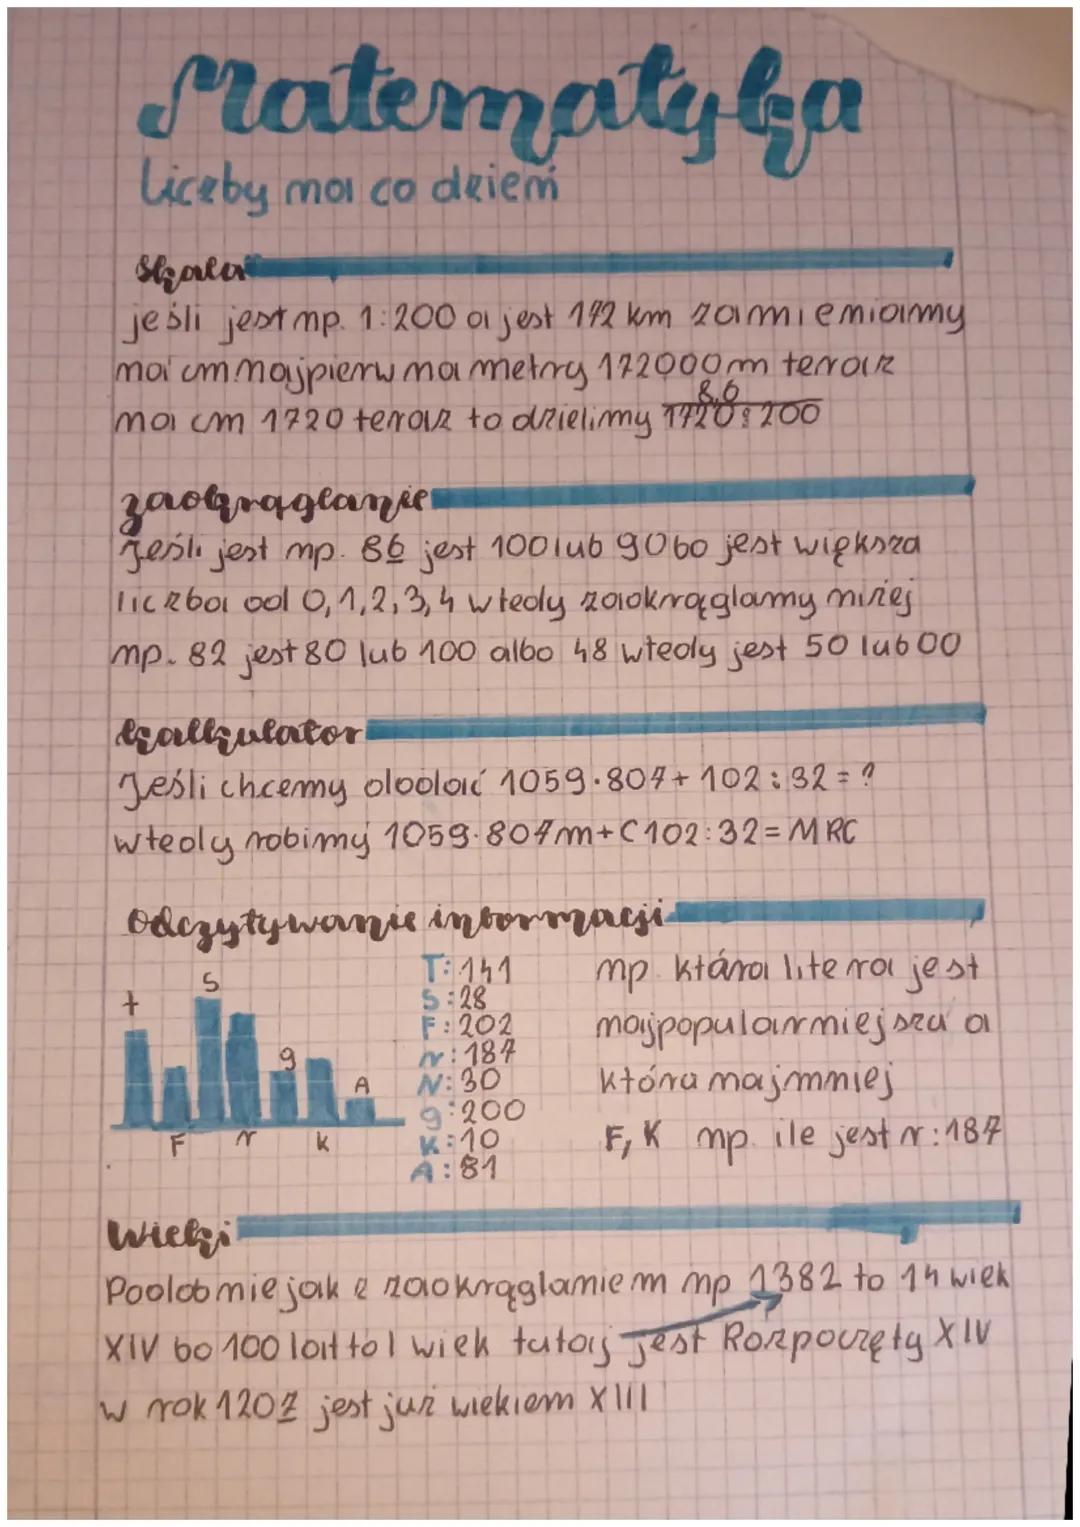 Matematyka
Liczby na co dzień
Skala
jeśli jest np. 1:200 a jest 172 km zamieniamy
na cm najpierw na metry 172000 m teraz
na cm 1720 teraz to dzielimy 1720:200
8,6
zaokrąglanie
Jeśli jest np. 86 jest 100 lub 90 bo jest większa
liczba od 0,1,2,3,4 wtedy zaokrąglamy niżej
np. 82 jest 80 lub 100 albo 48 wtedy jest 50 lub 00
kalkulator
Jeśli chcemy dodać 1059·807+102:32=?
wtedy robimy 1059·807m+C102:32=MRC
Odczytywanie informacji
t S g A
F r k
T:141
S:28
F:202
r:187
N:30
g:200
K:10
A:81
np. która litera jest
najpopularniejsza a
która najmniej
F, K np. ile jest r:187
Wieki
Podobnie jak z zaokrąglaniem np 1382 to 14 wiek
XIV bo 100 lat to 1 wiek tutaj jest Rozpoczęty XIV
w rok 1207 jest już wiekiem XIII